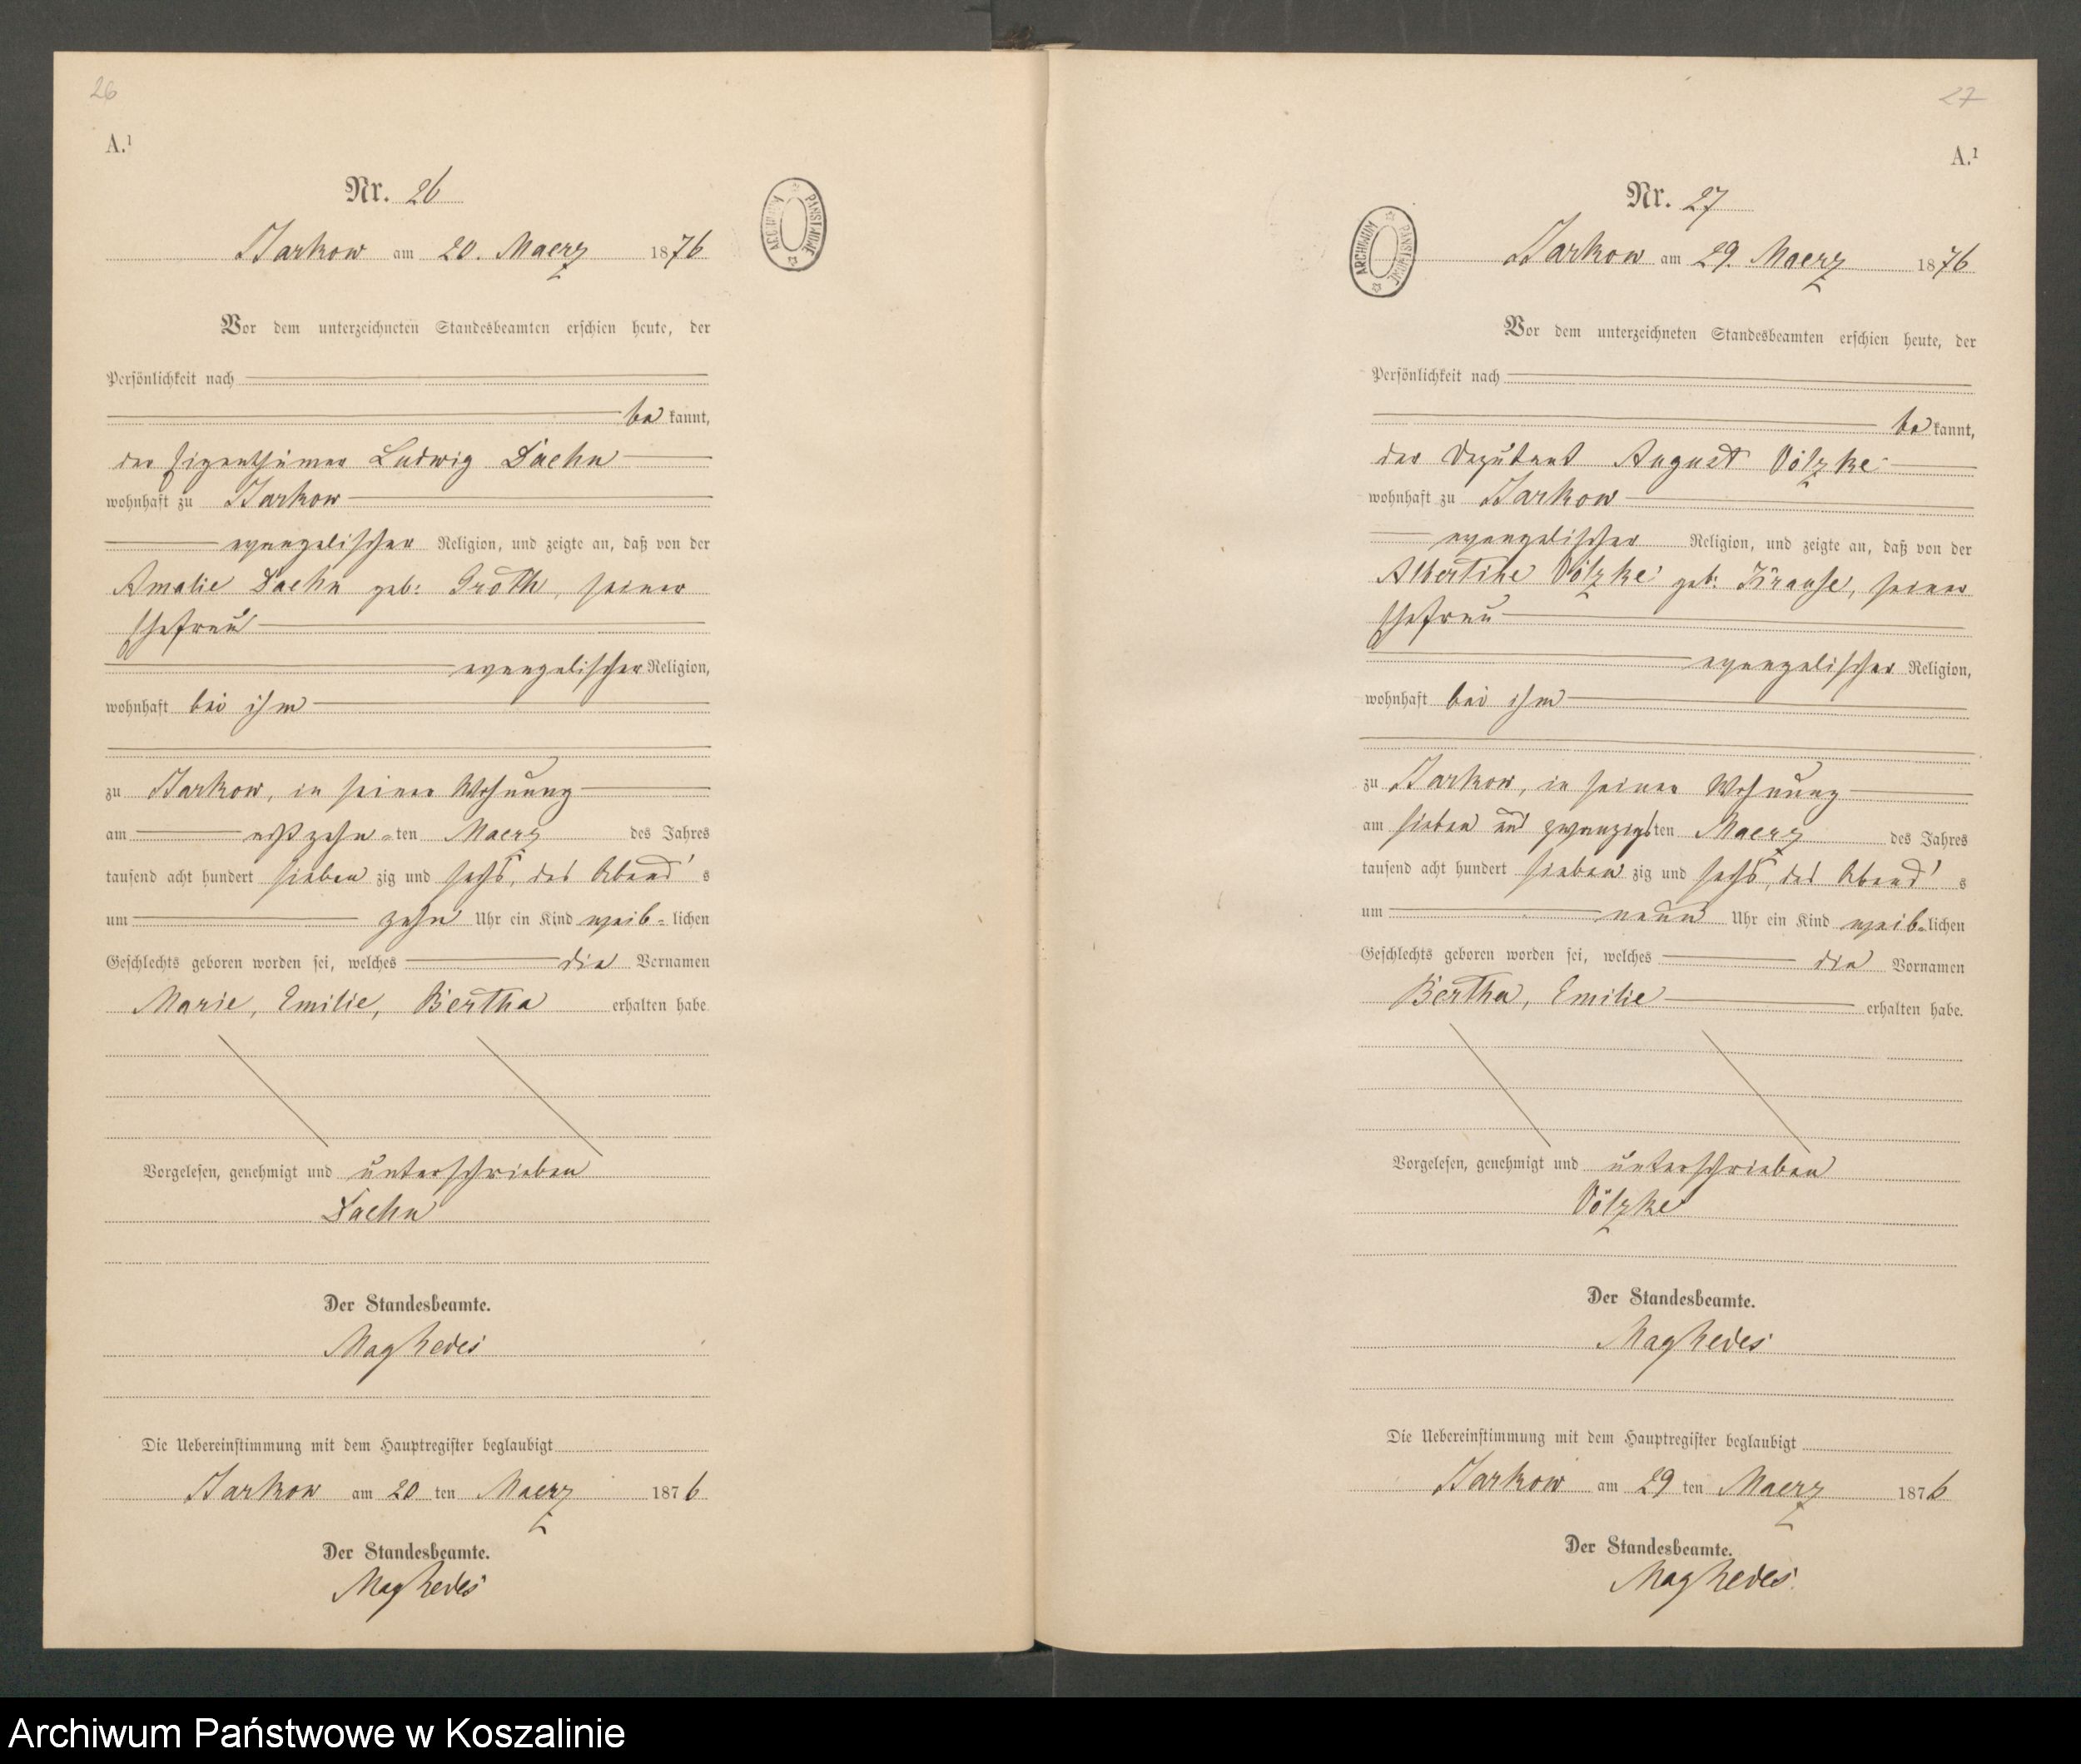 26
A.¹
Nr. 26
ARCHIWUM PAŃSTWOWE
Jarkow am 20. Maerz 1876
Vor dem unterzeichneten Standesbeamten erschien heute, der
Persönlichkeit nach
be kannt,
der Eigenthümer Ludwig Daehn
wohnhaft zu Jarkow
evangelischer Religion, und zeigte an, daß von der
Amalie Daehn geb: Groth, seiner
Ehefrau
evangelischer Religion,
wohnhaft bei ihm
zu Jarkow, in seiner Wohnung
am achtzehn-ten Maerz des Jahres
tausend acht hundert sieben zig und sechs, des Abend's
um zehn Uhr ein Kind weib-lichen
Geschlechts geboren worden sei, welches die Vornamen
Marie, Emilie, Bertha erhalten habe
Vorgelesen, genehmigt und unterschrieben
Daehn
Der Standesbeamte.
Die Uebereinstimmung mit dem Hauptregister beglaubigt
Jarkow am 20 ten Maerz 1876
Der Standesbeamte.
27
A.¹
Nr. 27
ARCHIWUM PAŃSTWOWE
Jarkow am 29. Maerz 1876
Vor dem unterzeichneten Standesbeamten erschien heute, der
Persönlichkeit nach
be kannt,
der Deputant August Völzke
wohnhaft zu Jarkow
evangelischer Religion, und zeigte an, daß von der
Albertine Völzke geb: Krause, seiner
Ehefrau
evangelischer Religion,
wohnhaft bei ihm
zu Jarkow, in seiner Wohnung
am sieben und zwanzigsten Maerz des Jahres
tausend acht hundert sieben zig und sechs, des Abend's
um neun Uhr ein Kind weib-lichen
Geschlechts geboren worden sei, welches die Vornamen
Bertha, Emilie erhalten habe.
Vorgelesen, genehmigt und unterschrieben
Völzke
Der Standesbeamte.
Die Uebereinstimmung mit dem Hauptregister beglaubigt
Jarkow am 29 ten Maerz 1876
Der Standesbeamte.
Archiwum Państwowe w Koszalinie